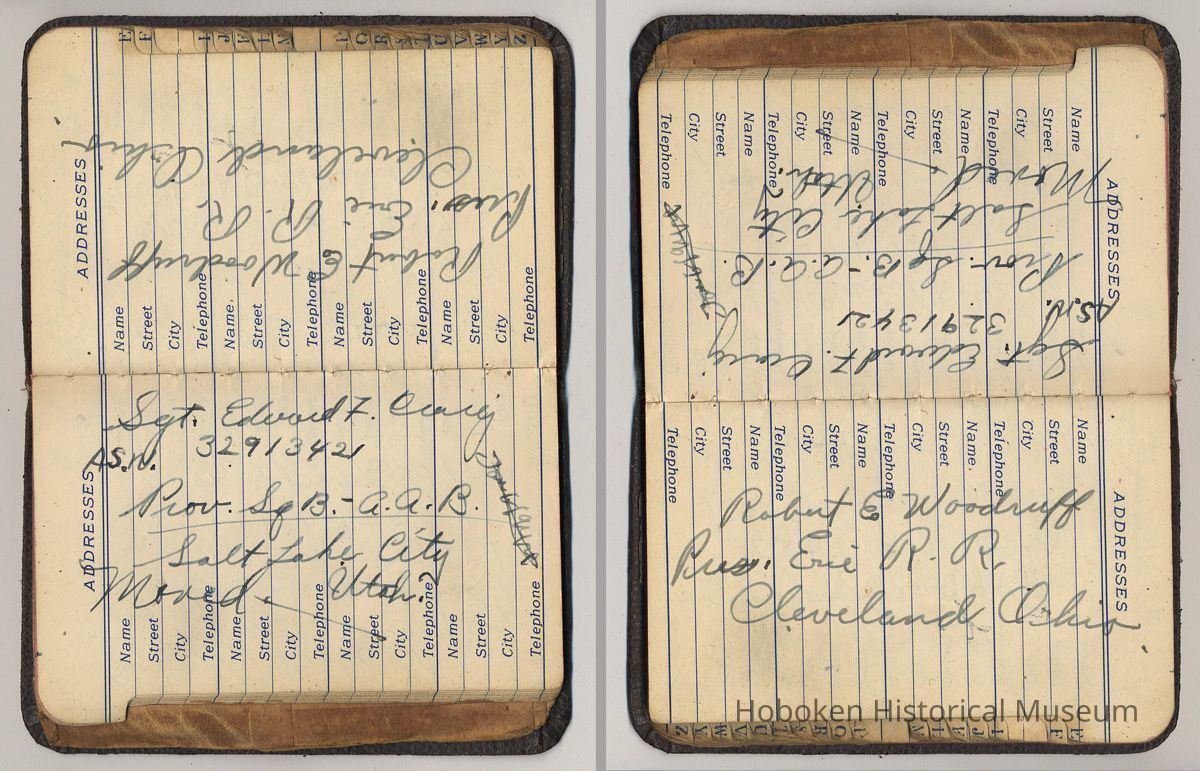 ADDRESSES
Name
Street
City
Telephone
Name
Street
City
Telephone
Name
Street
City
Telephone
Name
Street
City
Telephone
Robert E Woodruff
Pres. Erie R. R.
Cleveland Ohio
E F I J L N P Q R S T U V W Y Z
ADDRESSES
Name
Street
City
Telephone
Name
Street
City
Telephone
Name
Street
City
Telephone
Name
Street
City
Telephone
Sgt. Edward F. Craig
A.S.N. 32913421
Prov. Sq B. - A.A.B.
Salt Lake City
Moved. Utah.
ADDRESSES
Name
Street
City
Telephone
Name
Street
City
Telephone
Name
Street
City
Telephone
Name
Street
City
Telephone
Sgt. Edward F. Craig
A.S.N. 32913421
Prov. Sq B. - A.A.B.
Salt Lake City
Moved. Utah.
ADDRESSES
Name
Street
City
Telephone
Name
Street
City
Telephone
Name
Street
City
Telephone
Name
Street
City
Telephone
Robert E Woodruff
Pres. Erie R. R.
Cleveland Ohio
Z Y W V U T S R Q N L J I F E
Hoboken Historical Museum